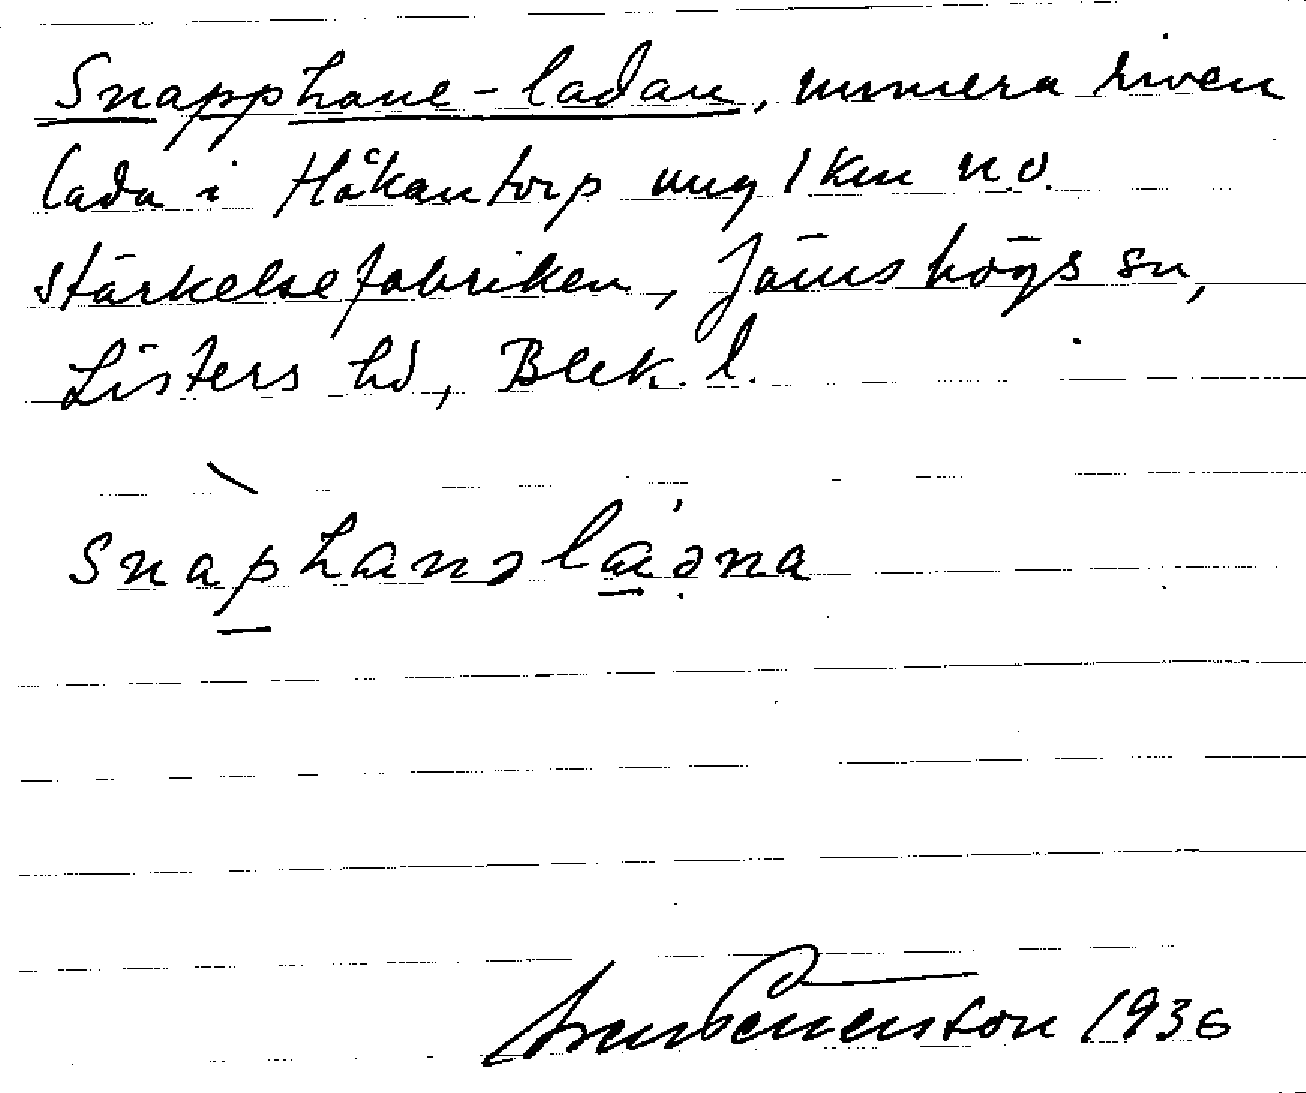 Snapphane-ladan, numera riven
lada i Håkantorp ung 1 km n.o.
stärkelsefabriken, Jämshögs sn,
Listers hd, Blek. l.
snaphanəladəna
1936